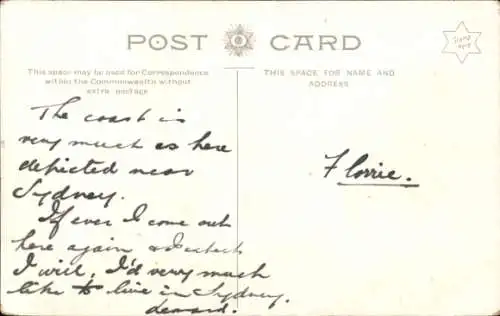 POST CARD
Stamp
here
This space may be used for Correspondence
within the Commonwealth without
extra postage
THIS SPACE FOR NAME AND
ADDRESS
The coast is
very much as here
depicted near
Sydney.
If ever I come out
here again & I expect
I will, I'd very much
like to live in Sydney.
Florrie.